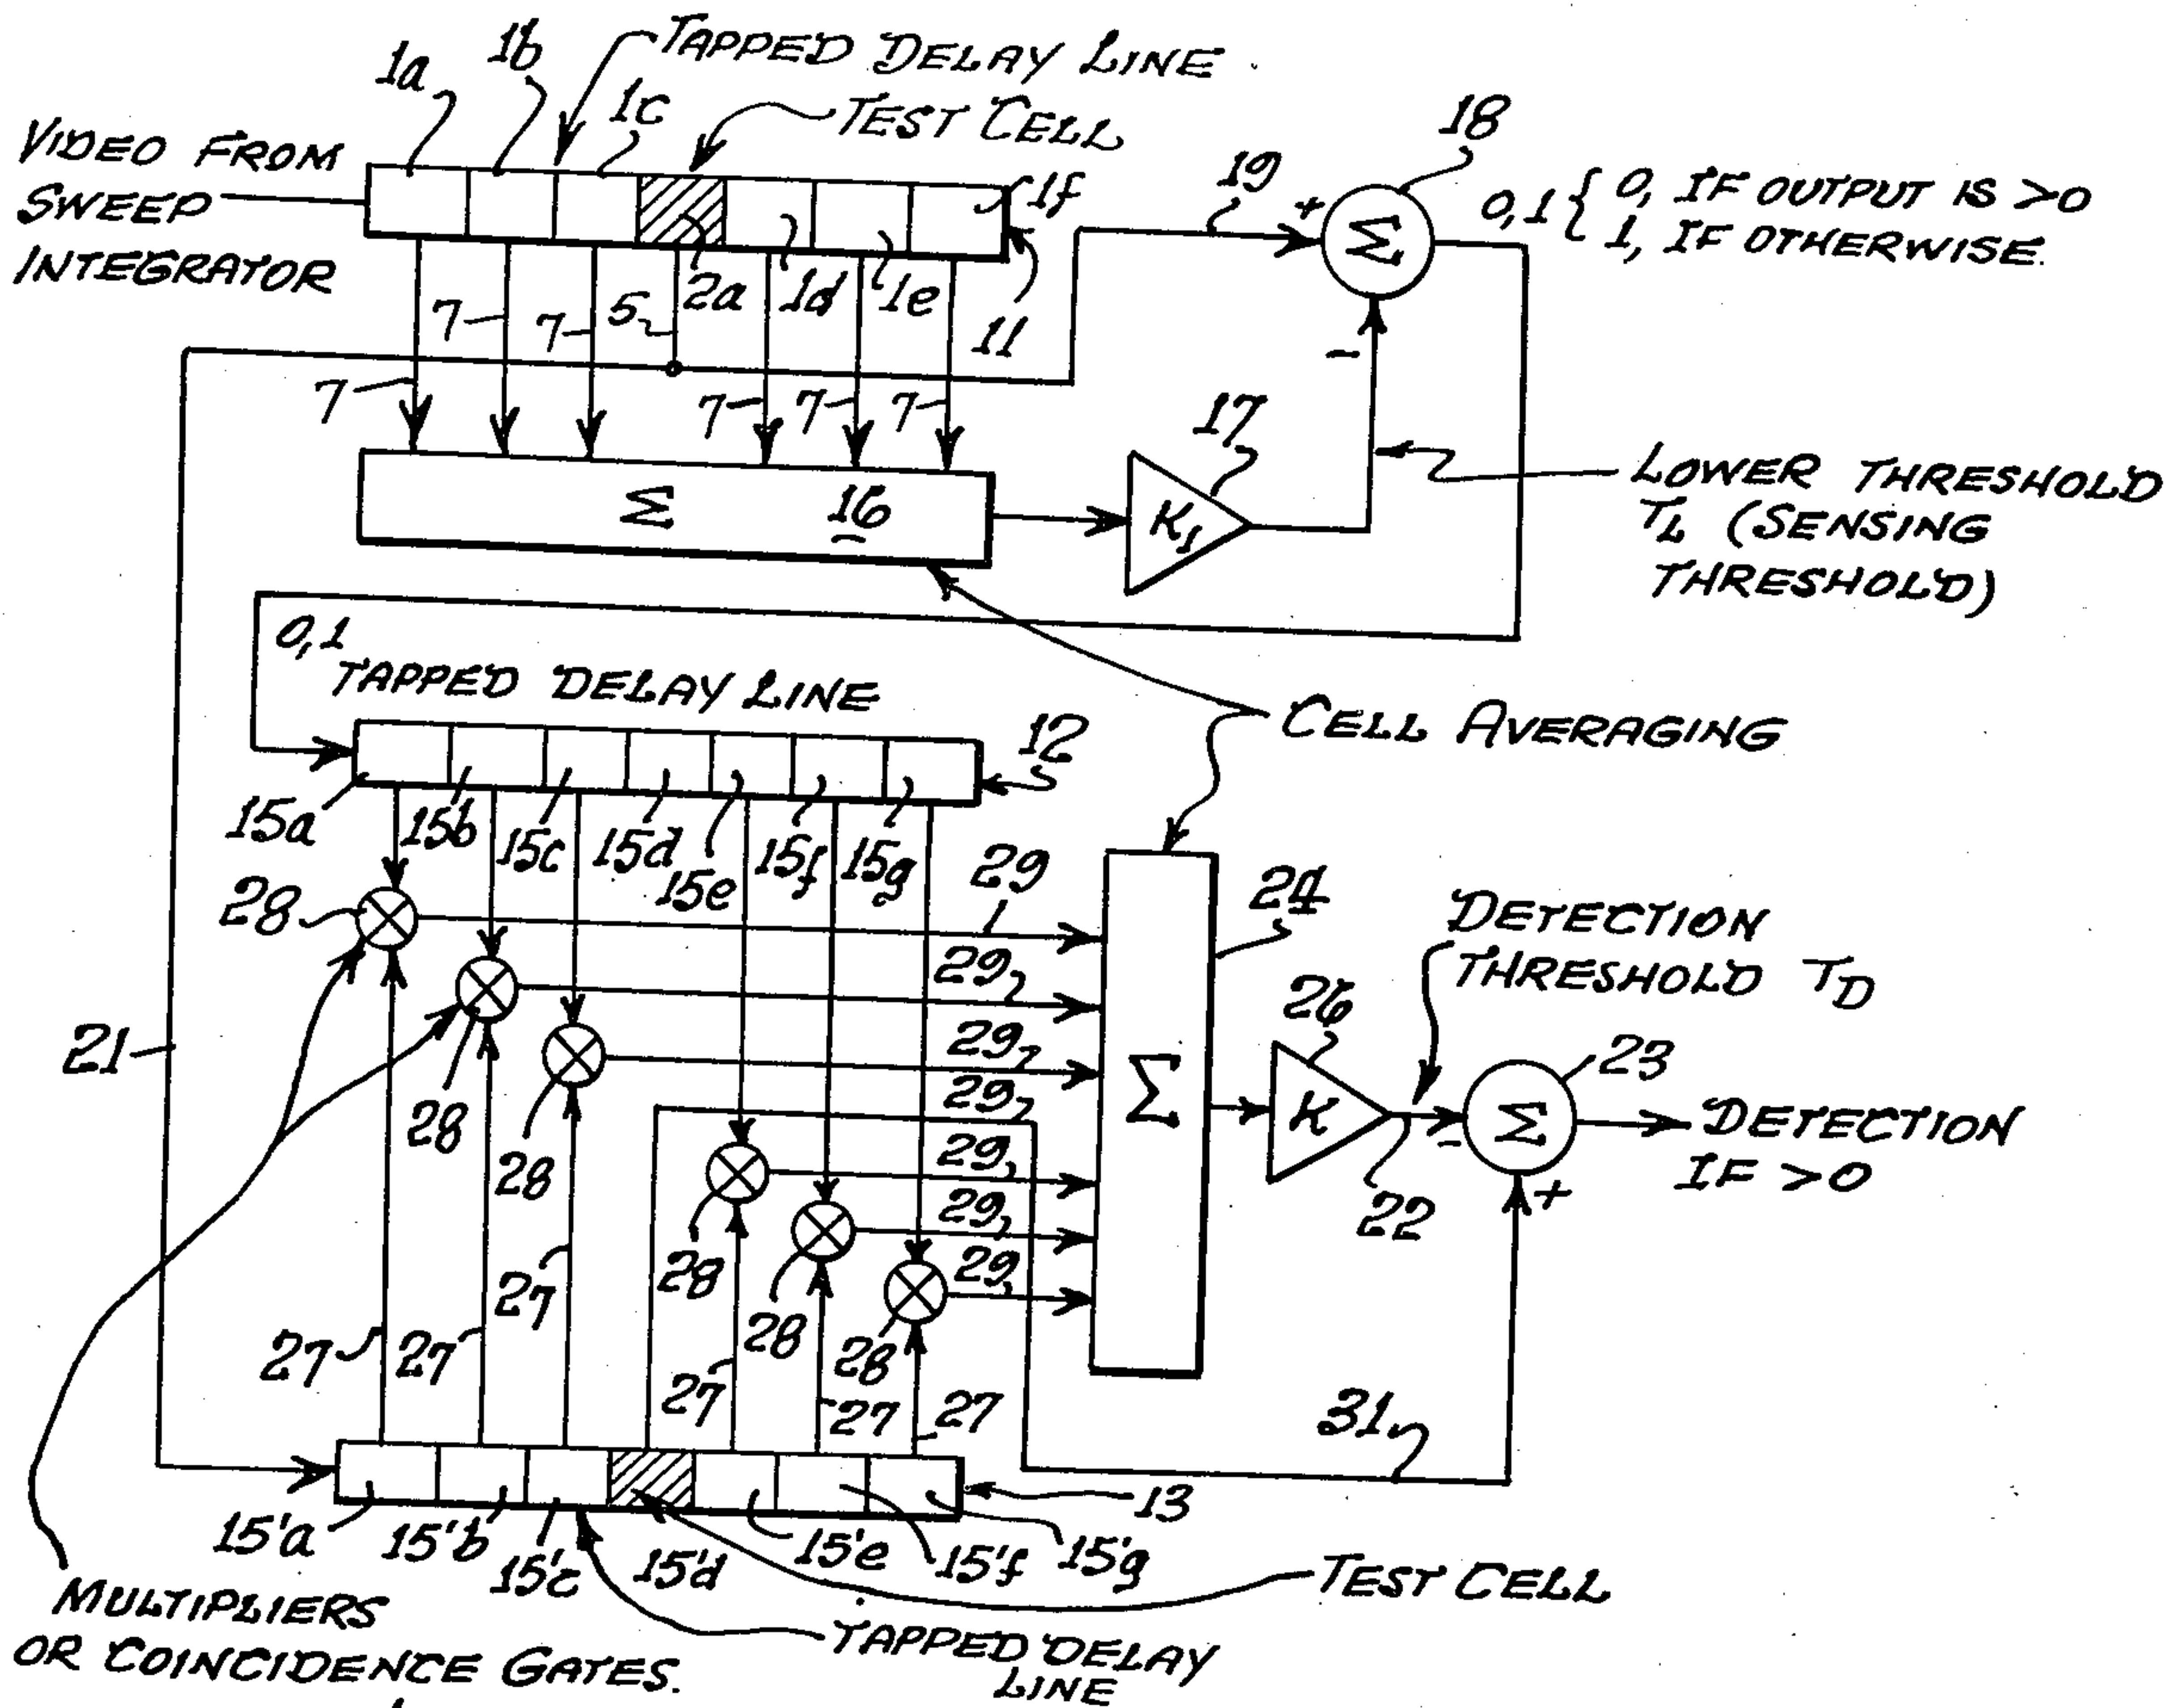 TAPPED DELAY LINE
1a
1b
1c
TEST CELL
18
VIDEO FROM
SWEEP
INTEGRATOR
1f
19
+
Σ
0,1 { 0, IF OUTPUT IS >0
1, IF OTHERWISE.
7
7
5
2a
1d
1e
11
-
7
7
7
7
17
Σ
16
K1
LOWER THRESHOLD
TL (SENSING
THRESHOLD)
0,1
TAPPED DELAY LINE
12
CELL AVERAGING
15a
15b
15c
15d
15e
15f
15g
29
24
28
DETECTION
THRESHOLD TD
29
26
21
29
23
28
29
Σ
K
-
Σ
DETECTION
IF >0
28
29
+
22
29
28
27
29
28
28
27
27
27
27
27
31
13
15'a
15'b
15'c
15'd
15'e
15'f
15'g
TEST CELL
MULTIPLIERS
OR COINCIDENCE GATES.
TAPPED DELAY
LINE